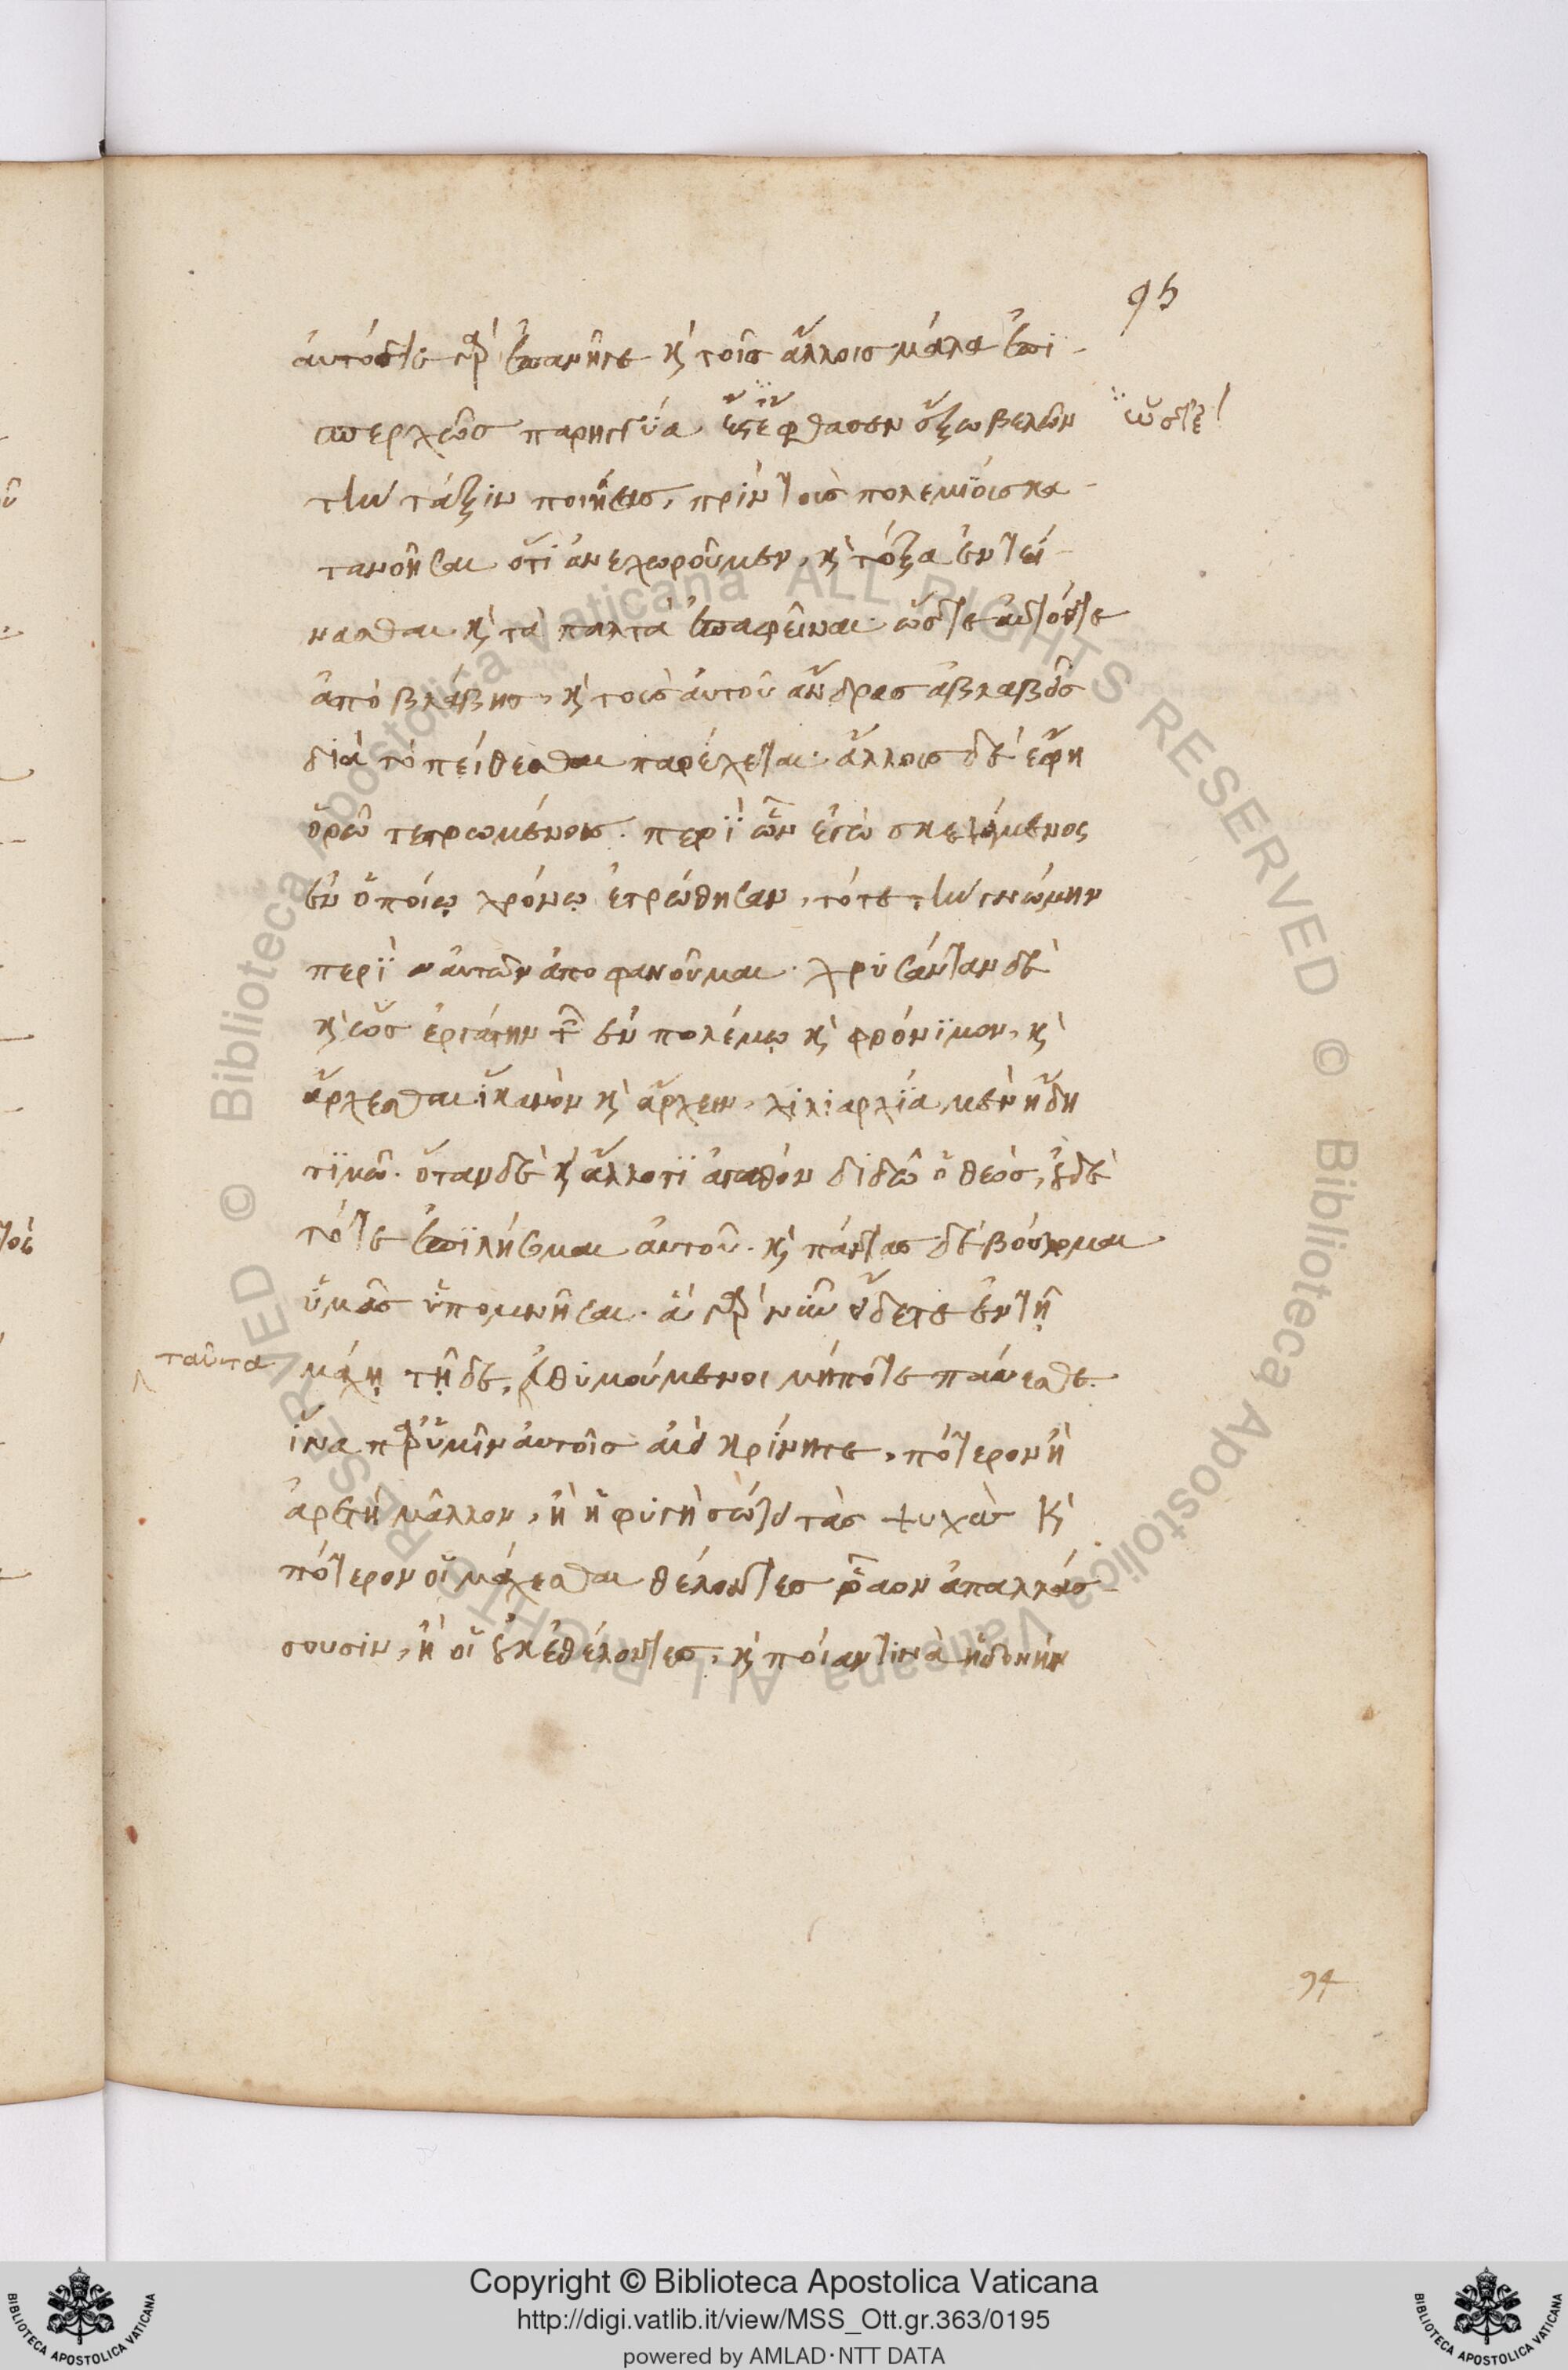 95
αὐτός τε γὰρ ἐπανῆγε καὶ τοῖς ἄλλοις μάλα ἐπι-
σπερχῶς παρηγγύα ἔφθασεν ἔξω βελῶν ὥστε
τὴν τάξιν ποιήσας, πρὶν τοὺς πολεμίους κα-
τανοῆσαι ὅτι ἀνεχωροῦμεν, καὶ τόξα ἐντεί-
νασθαι καὶ τὰ παλτὰ ἐπαφεῖναι. ὥστε αὐτός τε
ἀπὸ βλάβης, καὶ τοὺς αὐτοῦ ἄνδρας ἀβλαβεῖς
διὰ τὸ πείθεσθαι παρέχεται. ἄλλους δὲ ἔφη
ὁρῶ τετρωμένους. περὶ ὧν ἐγὼ σκεψάμενος
ἐν ὁποίῳ χρόνῳ ἐτρώθησαν, τότε τὴν γνώμην
περὶ αὐτῶν ἀποφανοῦμαι. χρυσάνταν δὲ
καὶ ὡς ἐργάτην τῶν ἐν πολέμῳ καὶ φρόνιμον, καὶ
ἄρχεσθαι ἱκανὸν καὶ ἄρχειν, χιλιαρχία μὲν ἤδη
τιμῶ. ὅταν δὲ καὶ ἄλλο τι ἀγαθὸν διδῶ ὁ θεός, οὐδὲ
τότε ἐπιλήσομαι αὐτοῦ. καὶ πάντας δὲ βούλομαι
ὑμᾶς ὑπομνῆσαι. ἃ γὰρ νῦν εἴδετε ἐν τῇ
ταῦτα μάχῃ τῇδε, ἐνθυμούμενοι μήποτε παύεσθε.
ἵνα παρ' ὑμῖν αὐτοῖς ἀεὶ κρίνητε, πότερον ἡ
ἀρετὴ μᾶλλον, ἢ ἡ φυγὴ σώζει τὰς ψυχὰς καὶ
πότερον οἱ μάχεσθαι θέλοντες ῥᾶον ἀπαλλάσ-
σουσιν, ἢ οἱ οὐκ ἐθέλοντες, καὶ ποίαν τινὰ ἡδονὴν
94
Copyright © Biblioteca Apostolica Vaticana
http://digi.vatlib.it/view/MSS_Ott.gr.363/0195
powered by AMLAD·NTT DATA